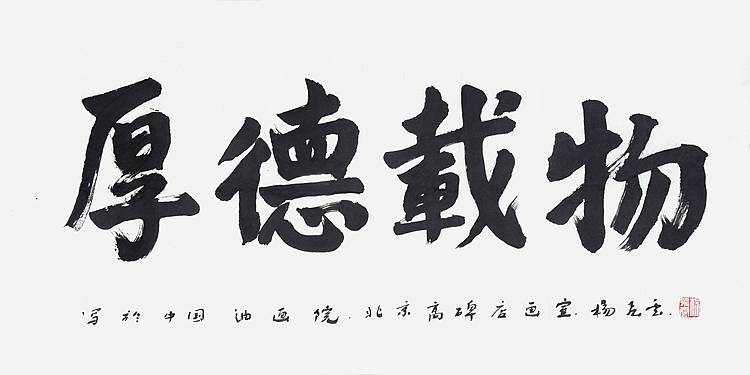 厚德載物
写於中国油画院.北京高碑店画室.楊